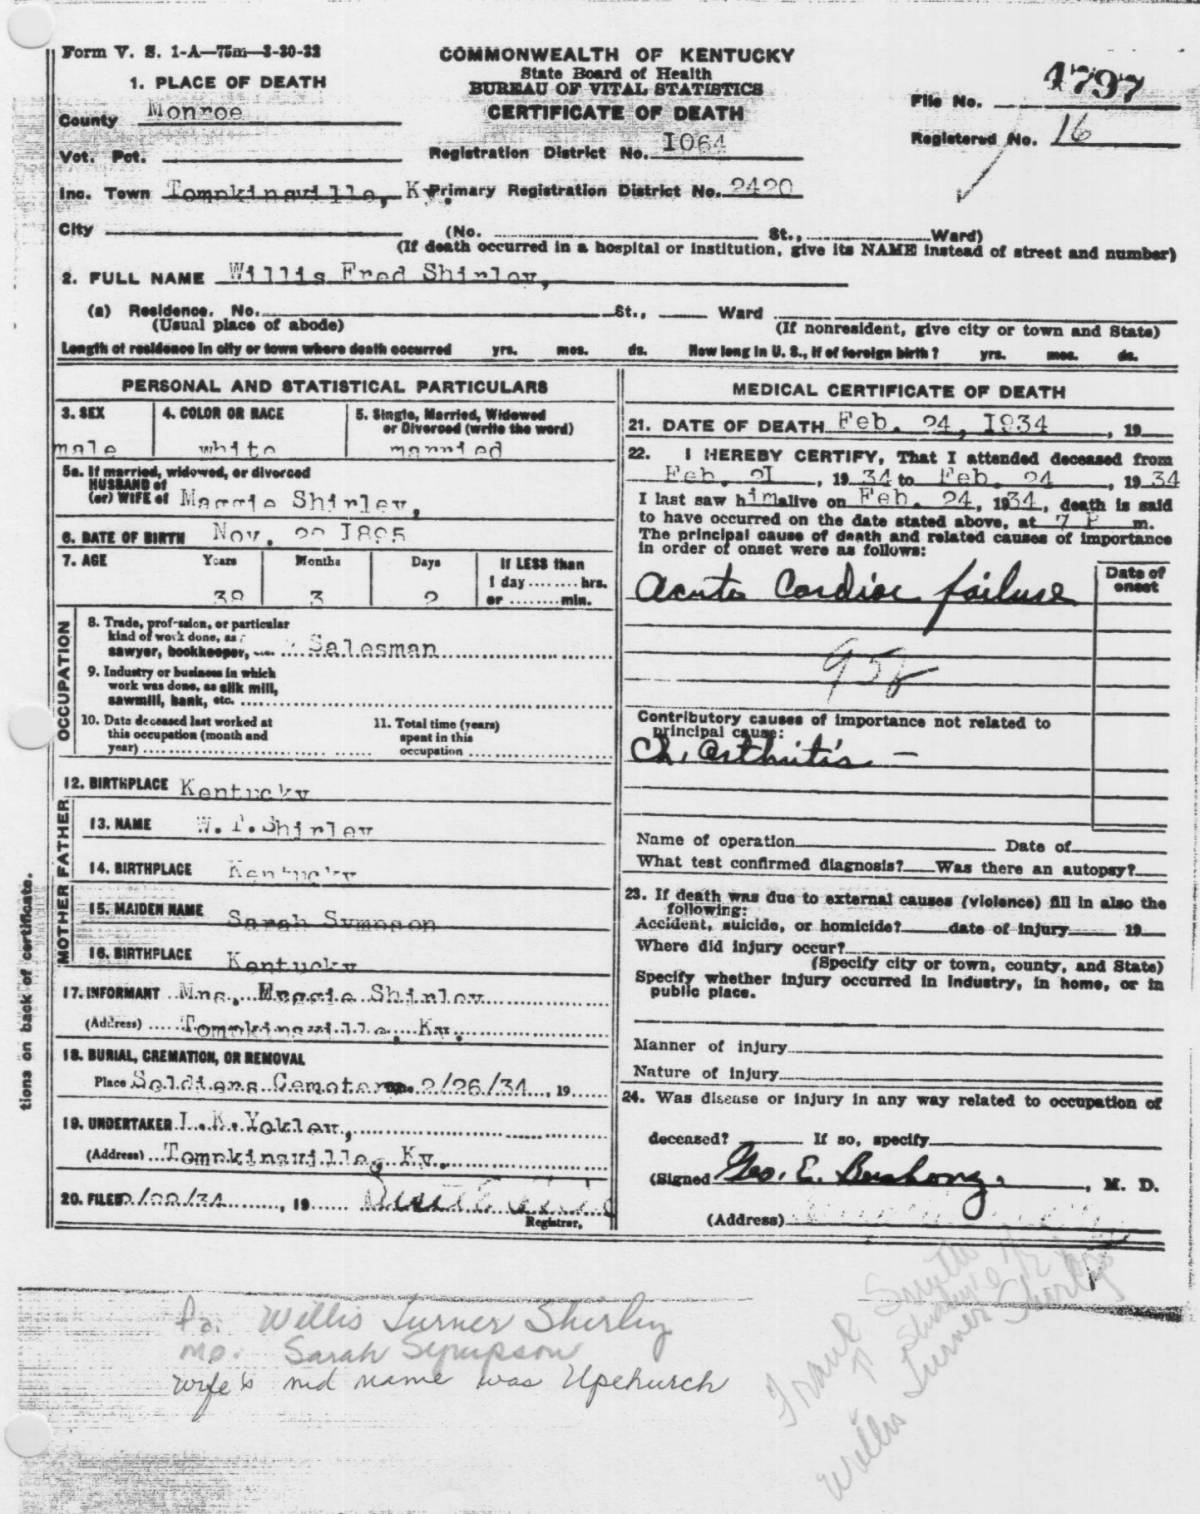 Form V. S. 1-A—75m—3-30-32
COMMONWEALTH OF KENTUCKY
State Board of Health
BUREAU OF VITAL STATISTICS
CERTIFICATE OF DEATH
File No. 4797
Registered No. 16
1. PLACE OF DEATH
County Monroe
Vot. Pct.
Registration District No. I064
Inc. Town Tompkinsville, Ky.
Primary Registration District No. 2420
City (No. St., Ward)
(If death occurred in a hospital or institution, give its NAME instead of street and number)
2. FULL NAME Willis Fred Shirley,
(a) Residence. No. St., Ward
(Usual place of abode) (If nonresident, give city or town and State)
Length of residence in city or town where death occurred yrs. mos. ds. How long in U. S., if of foreign birth? yrs. mos. ds.
PERSONAL AND STATISTICAL PARTICULARS
3. SEX
male
4. COLOR OR RACE
white
5. Single, Married, Widowed
or Divorced (write the word)
married
5a. If married, widowed, or divorced
HUSBAND of
(or) WIFE of Maggie Shirley,
6. DATE OF BIRTH Nov. 22 I895
7. AGE Years Months Days If LESS than
1 day ........ hrs.
or ........ min.
38 3 2
OCCUPATION
8. Trade, profession, or particular
kind of work done, as
sawyer, bookkeeper, Salesman
9. Industry or business in which
work was done, as silk mill,
sawmill, bank, etc.
10. Date deceased last worked at
this occupation (month and
year)
11. Total time (years)
spent in this
occupation
12. BIRTHPLACE Kentucky
FATHER
13. NAME W. T. Shirley
14. BIRTHPLACE Kentucky
MOTHER
15. MAIDEN NAME Sarah Sympson
16. BIRTHPLACE Kentucky
17. INFORMANT Mrs. Maggie Shirley
(Address) Tompkinsville, Ky.
18. BURIAL, CREMATION, OR REMOVAL
Place Soldiers Cemetery 2/26/34, 19
19. UNDERTAKER L. K. Yokley,
(Address) Tompkinsville, Ky.
20. FILED /34, 19
Registrar.
MEDICAL CERTIFICATE OF DEATH
21. DATE OF DEATH Feb. 24, I934, 19
22. I HEREBY CERTIFY, That I attended deceased from
Feb. 2I, 1934 to Feb. 24, 1934
I last saw him alive on Feb. 24, 1934, death is said
to have occurred on the date stated above, at 7 P m.
The principal cause of death and related causes of importance
in order of onset were as follows:
Date of
onset
Acute Cardiac failure
Contributory causes of importance not related to
principal cause:
Ch. arthritis —
Name of operation Date of
What test confirmed diagnosis? Was there an autopsy?
23. If death was due to external causes (violence) fill in also the
following:
Accident, suicide, or homicide? date of injury 19
Where did injury occur?
(Specify city or town, county, and State)
Specify whether injury occurred in industry, in home, or in
public place.
Manner of injury
Nature of injury
24. Was disease or injury in any way related to occupation of
deceased? If so, specify
(Signed Geo. E. Bushong, M. D.
(Address)
tions on back of certificate.
Fa. Willis Turner Shirley
Mo. Sarah Sympson
wife's md name was Upchurch
Frank Smith
Willis Turner Shirley